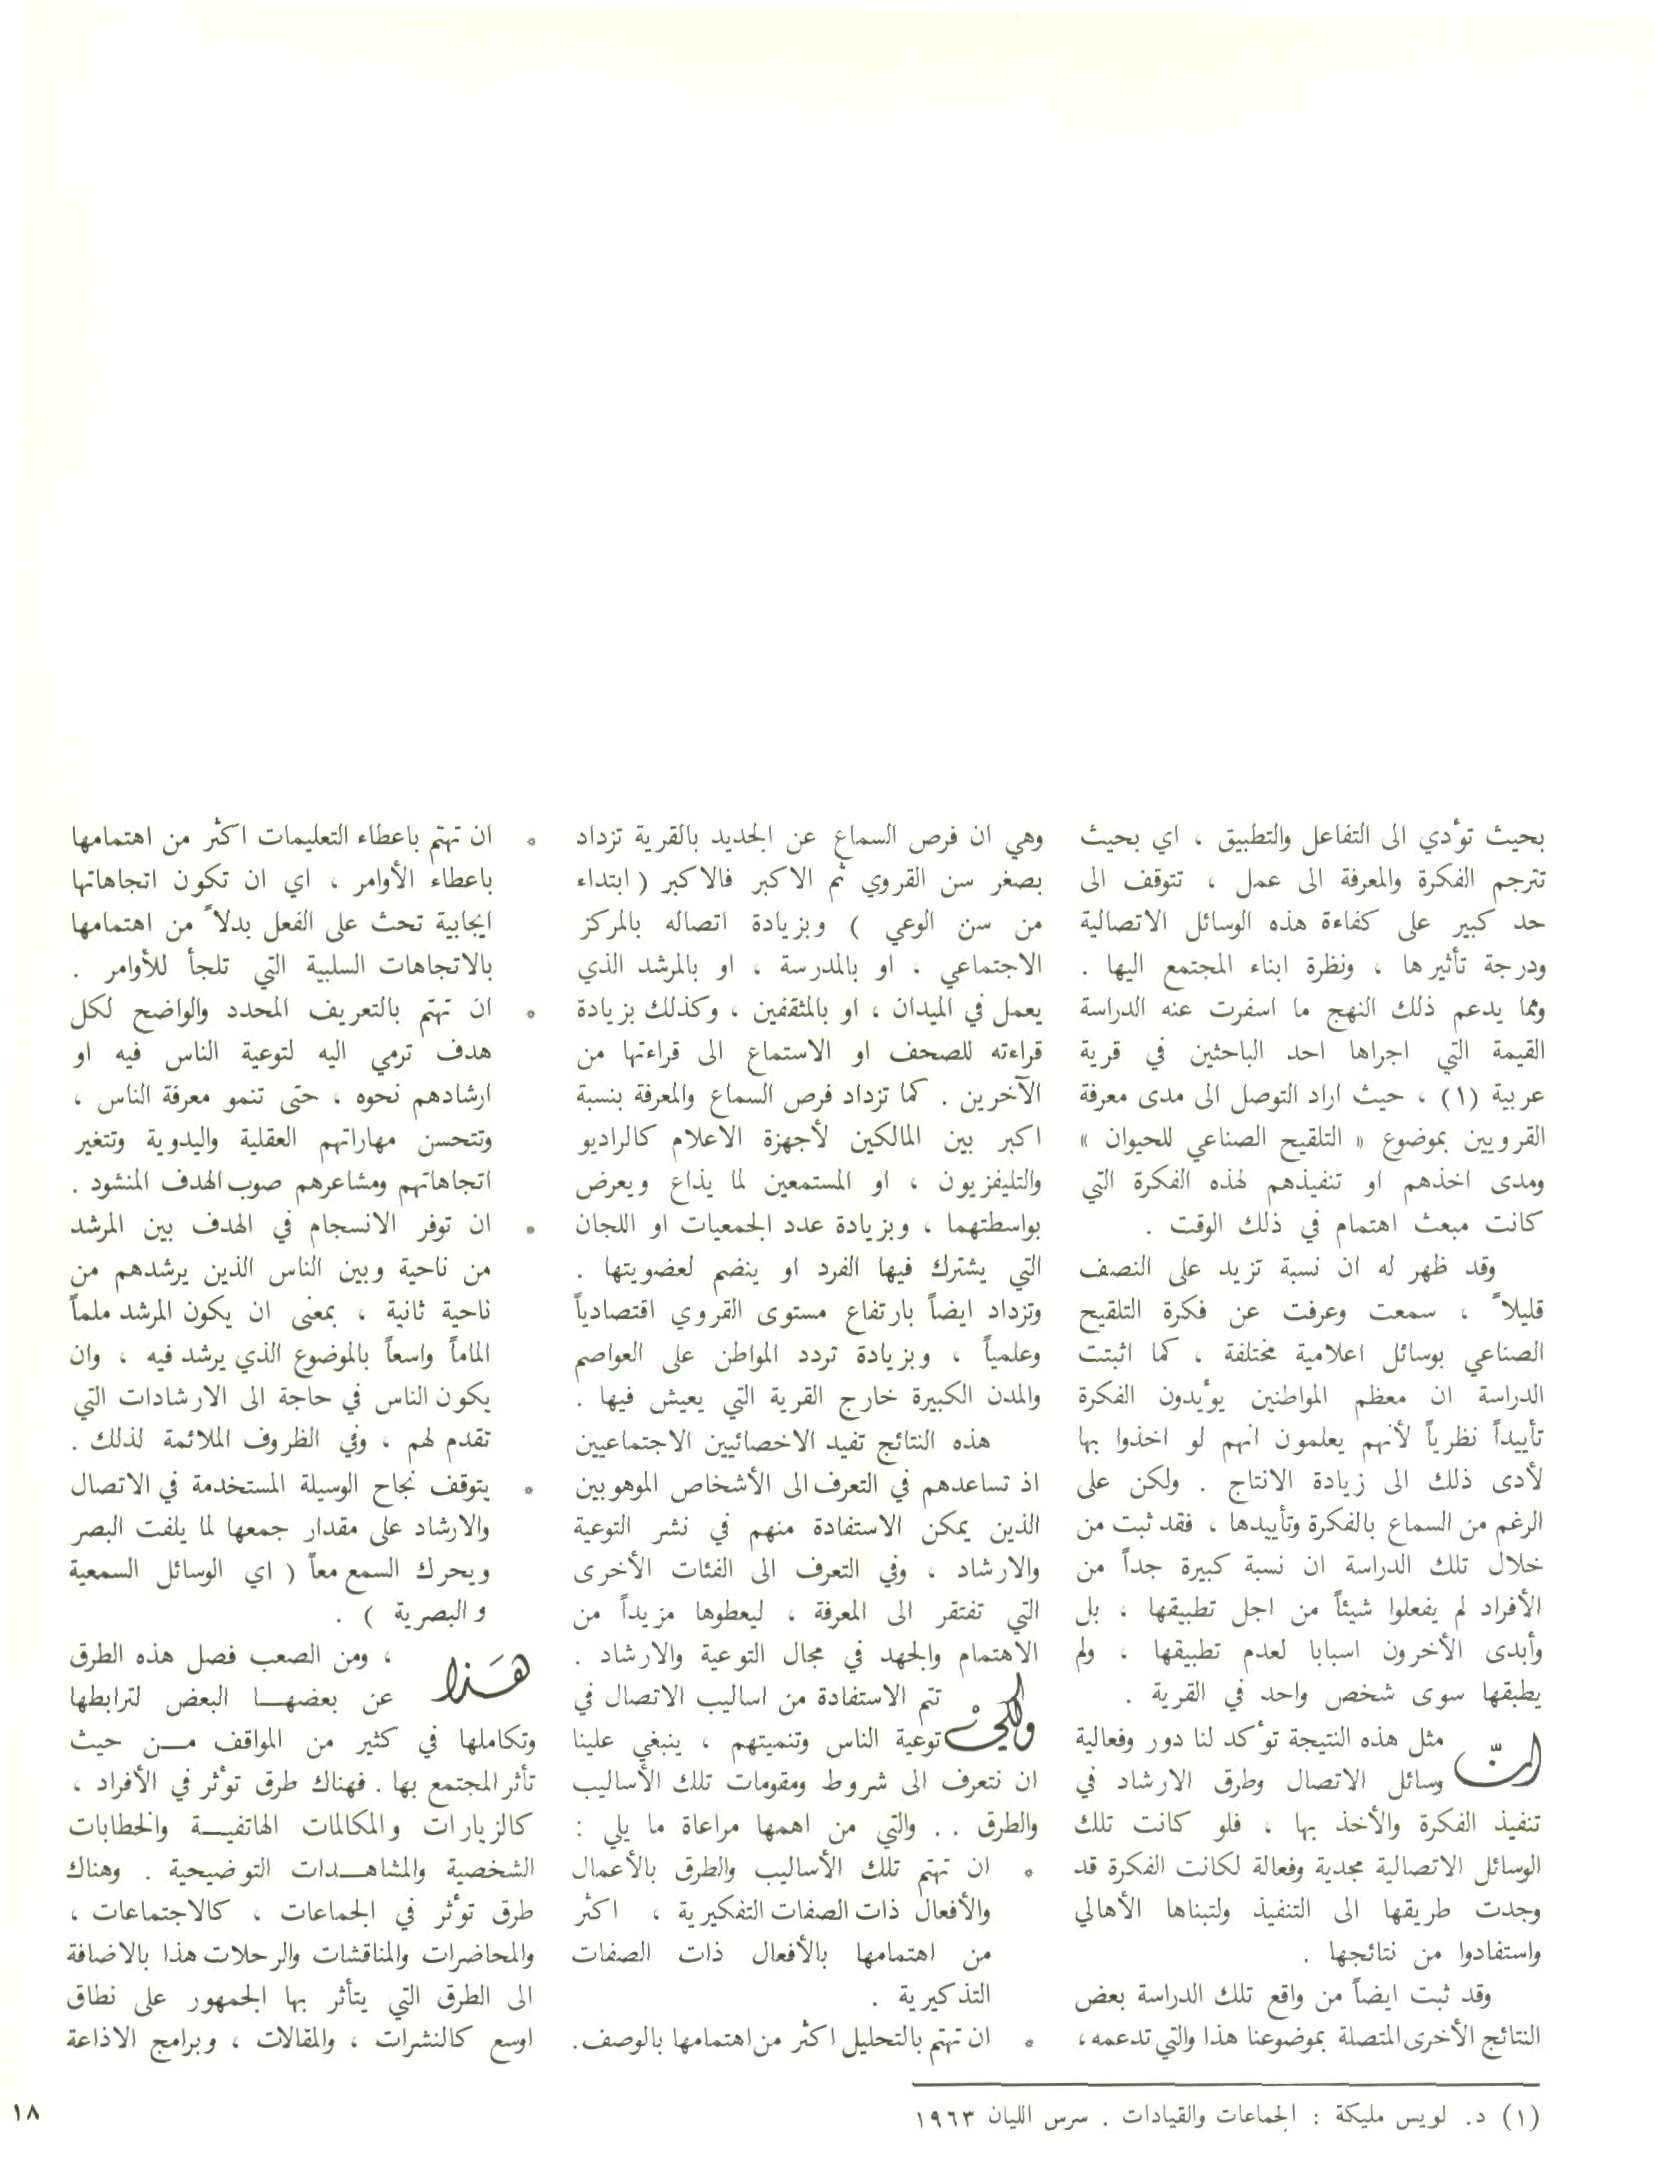 بحيث تؤدي الى التفاعل والتطبيق ، اي بحيث
تترجم الفكرة والمعرفة الى عمل ، تتوقف الى
حد كبير على كفاءة هذه الوسائل الاتصالية
ودرجة تأثيرها ، ونظرة ابناء المجتمع اليها .
ومما يدعم ذلك النهج ما اسفرت عنه الدراسة
القيمة التي اجراها احد الباحثين في قرية
عربية (١) ، حيث اراد التوصل الى مدى معرفة
القرويين بموضوع « التلقيح الصناعي للحيوان »
ومدى اخذهم او تنفيذهم لهذه الفكرة التي
كانت مبعث اهتمام في ذلك الوقت .
وقد ظهر له ان نسبة تزيد على النصف
قليلاً ، سمعت وعرفت عن فكرة التلقيح
الصناعي بوسائل اعلامية مختلفة ، كما اثبتت
الدراسة ان معظم المواطنين يؤيدون الفكرة
تأييداً نظرياً لأنهم يعلمون انهم لو اخذوا بها
لأدى ذلك الى زيادة الانتاج . ولكن على
الرغم من السماع بالفكرة وتأييدها ، فقد ثبت من
خلال تلك الدراسة ان نسبة كبيرة جداً من
الأفراد لم يفعلوا شيئاً من اجل تطبيقها ، بل
وأبدى الأخرون اسبابا لعدم تطبيقها ، ولم
يطبقها سوى شخص واحد في القرية .
انّ مثل هذه النتيجة تؤكد لنا دور وفعالية
وسائل الاتصال وطرق الارشاد في
تنفيذ الفكرة والأخذ بها ، فلو كانت تلك
الوسائل الاتصالية مجدية وفعالة لكانت الفكرة قد
وجدت طريقها الى التنفيذ ولتبناها الأهالي
واستفادوا من نتائجها .
وقد ثبت ايضاً من واقع تلك الدراسة بعض
النتائج الأخرى المتصلة بموضوعنا هذا والتي تدعمه،
وهي ان فرص السماع عن الجديد بالقرية تزداد
بصغر سن القروي ثم الاكبر فالاكبر ( ابتداء
من سن الوعي ) وبزيادة اتصاله بالمركز
الاجتماعي ، او بالمدرسة ، او بالمرشد الذي
يعمل في الميدان ، او بالمثقفين ، وكذلك بزيادة
قراءته للصحف او الاستماع الى قراءتها من
الآخرين . كما تزداد فرص السماع والمعرفة بنسبة
اكبر بين المالكين لأجهزة الاعلام كالراديو
والتليفزيون ، او المستمعين لما يذاع ويعرض
بواسطتهما ، وبزيادة عدد الجمعيات او اللجان
التي يشترك فيها الفرد او ينضم لعضويتها .
وتزداد ايضاً بارتفاع مستوى القروي اقتصادياً
وعلمياً ، وبزيادة تردد المواطن على العواصم
والمدن الكبيرة خارج القرية التي يعيش فيها .
هذه النتائج تفيد الاخصائيين الاجتماعيين
اذ تساعدهم في التعرف الى الأشخاص الموهوبين
الذين يمكن الاستفادة منهم في نشر التوعية
والارشاد ، وفي التعرف الى الفئات الأخرى
التي تفتقر الى المعرفة ، ليعطوها مزيداً من
الاهتمام والجهد في مجال التوعية والارشاد .
ولكي تتم الاستفادة من اساليب الاتصال في
توعية الناس وتنميتهم ، ينبغي علينا
ان نتعرف الى شروط ومقومات تلك الأساليب
والطرق . . والتي من اهمها مراعاة ما يلي :
• ان تهتم تلك الأساليب والطرق بالأعمال
والأفعال ذات الصفات التفكيرية ، اكثر
من اهتمامها بالأفعال ذات الصفات
التذكيرية .
• ان تهتم بالتحليل اكثر من اهتمامها بالوصف.
• ان تهتم باعطاء التعليمات اكثر من اهتمامها
باعطاء الأوامر ، اي ان تكون اتجاهاتها
ايجابية تحث على الفعل بدلاً من اهتمامها
بالاتجاهات السلبية التي تلجأ للأوامر .
• ان تهتم بالتعريف المحدد والواضح لكل
هدف ترمي اليه لتوعية الناس فيه او
ارشادهم نحوه ، حتى تنمو معرفة الناس ،
وتتحسن مهاراتهم العقلية واليدوية وتتغير
اتجاهاتهم ومشاعرهم صوب الهدف المنشود .
• ان توفر الانسجام في الهدف بين المرشد
من ناحية وبين الناس الذين يرشدهم من
ناحية ثانية ، بمعنى ان يكون المرشد ملماً
الماماً واسعاً بالموضوع الذي يرشد فيه ، وان
يكون الناس في حاجة الى الارشادات التي
تقدم لهم ، وفي الظروف الملائمة لذلك .
• يتوقف نجاح الوسيلة المستخدمة في الاتصال
والارشاد على مقدار جمعها لما يلفت البصر
ويحرك السمع معاً ( اي الوسائل السمعية
والبصرية ) .
هَذا ، ومن الصعب فصل هذه الطرق
عن بعضهـا البعض لترابطها
وتكاملها في كثير من المواقف مـن حيث
تأثر المجتمع بها . فهناك طرق تؤثر في الأفراد ،
كالزيارات والمكالمات الهاتفيـة والخطابات
الشخصية والمشاهـدات التوضيحية . وهناك
طرق تؤثر في الجماعات ، كالاجتماعات ،
والمحاضرات والمناقشات والرحلات هذا بالاضافة
الى الطرق التي يتأثر بها الجمهور على نطاق
اوسع كالنشرات ، والمقالات ، وبرامج الاذاعة
(١) د. لويس مليكة : الجماعات والقيادات . سرس الليان ١٩٦٣
١٨